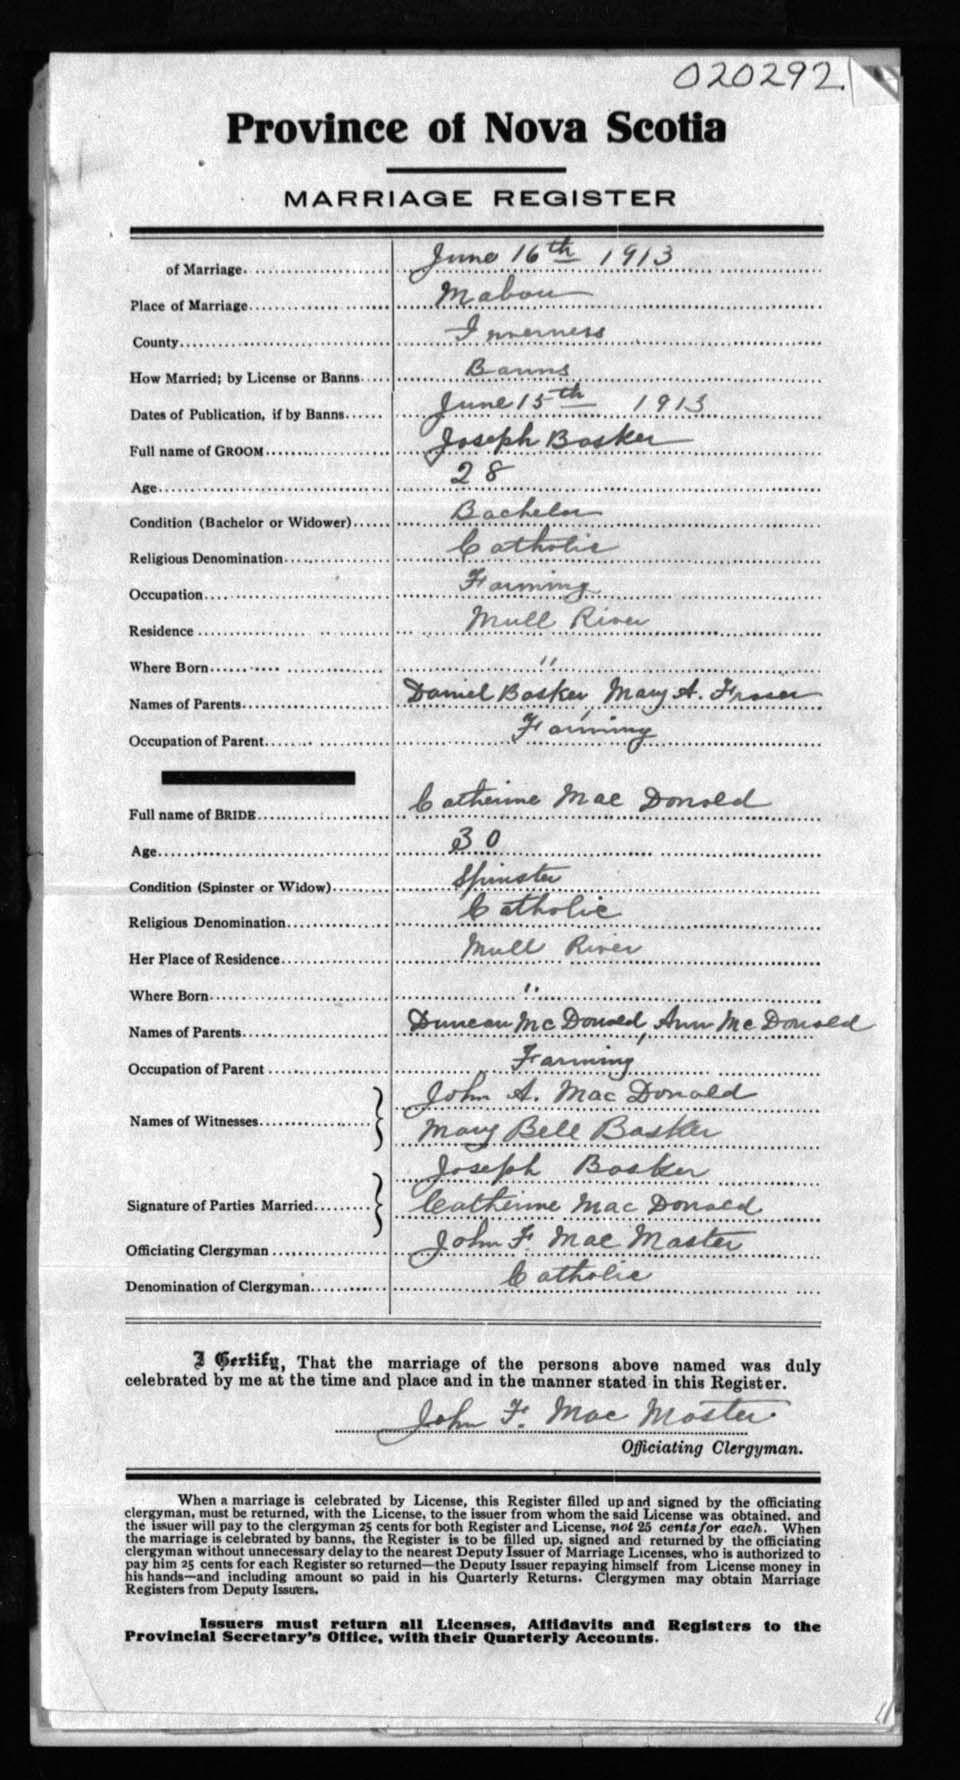 020292.
Province of Nova Scotia
MARRIAGE REGISTER
of Marriage June 16th 1913
Place of Marriage Mabou
County Inverness
How Married; by License or Banns Banns
Dates of Publication, if by Banns June 15th 1913
Full name of GROOM Joseph Basker
Age 28
Condition (Bachelor or Widower) Bachelor
Religious Denomination Catholic
Occupation Farming
Residence Mull River
Where Born "
Names of Parents Daniel Basker, Mary A. Fraser
Occupation of Parent Farming
Full name of BRIDE Catherine Mac Donald
Age 30
Condition (Spinster or Widow) Spinster
Religious Denomination Catholic
Her Place of Residence Mull River
Where Born "
Names of Parents Duncan McDonald, Ann McDonald
Occupation of Parent Farming
John A. MacDonald
Names of Witnesses Mary Bell Basker
Joseph Basker
Signature of Parties Married Catherine MacDonald
Officiating Clergyman John F. MacMaster
Denomination of Clergyman Catholic
I Certify, That the marriage of the persons above named was duly
celebrated by me at the time and place and in the manner stated in this Register.
John F. MacMaster
Officiating Clergyman.
When a marriage is celebrated by License, this Register filled up and signed by the officiating
clergyman, must be returned, with the License, to the issuer from whom the said License was obtained, and
the issuer will pay to the clergyman 25 cents for both Register and License, not 25 cents for each. When
the marriage is celebrated by banns, the Register is to be filled up, signed and returned by the officiating
clergyman without unnecessary delay to the nearest Deputy Issuer of Marriage Licenses, who is authorized to
pay him 25 cents for each Register so returned—the Deputy Issuer repaying himself from License money in
his hands—and including amount so paid in his Quarterly Returns. Clergymen may obtain Marriage
Registers from Deputy Issuers.
Issuers must return all Licenses, Affidavits and Registers to the
Provincial Secretary's Office, with their Quarterly Accounts.